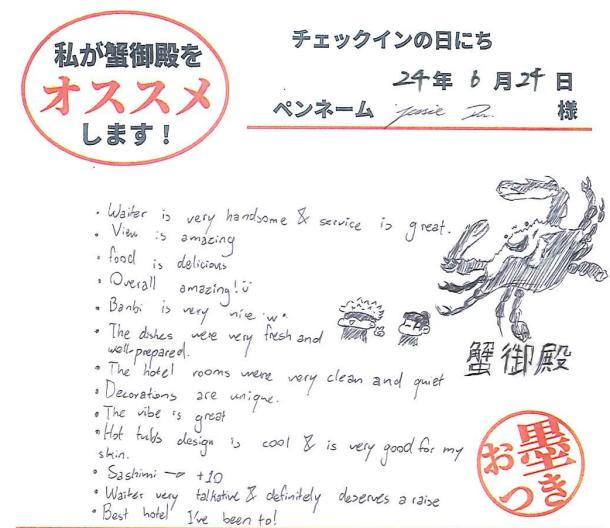 私が蟹御殿を
オススメ
します！
チェックインの日にち
24年 6月24日
ペンネーム Jessie 様
• Waiter is very handsome & service is great.
• View is amazing
• food is delicious
• Overall amazing! ü
• Banbi is very nice •w•
• The dishes were very fresh and
well-prepared.
• The hotel rooms were very clean and quiet
• Decorations are unique.
• The vibe is great
• Hot tubs design is cool & is very good for my
skin.
• Sashimi → +10
• Waiter very talkative & definitely deserves a raise
• Best hotel I've been to!
蟹御殿
お墨つき